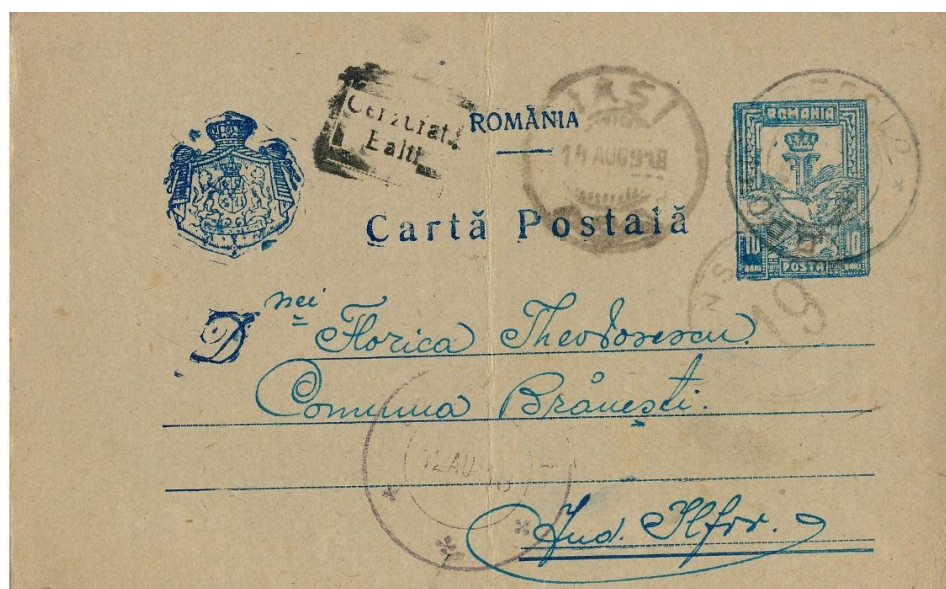 Cenzurat
Balti
ROMÂNIA
IAȘI
14 AUG 918
ROMANIA
Cartă Postală
10 BANI POSTA 10 BANI
Dnei Florica Theodosescu
Comuna Brănești.
12 AU 18
19
Jud. Ilfov.